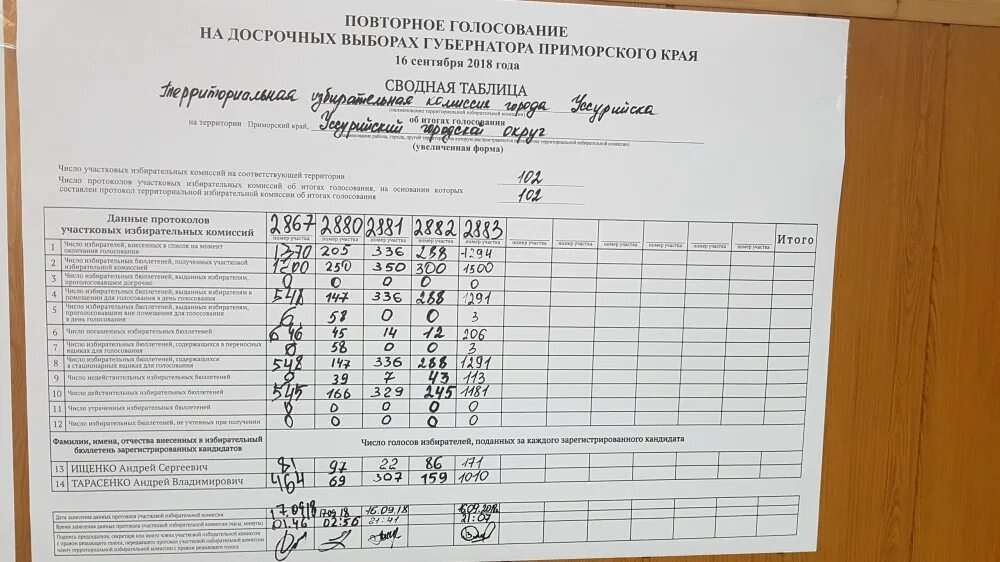 ПОВТОРНОЕ ГОЛОСОВАНИЕ
НА ДОСРОЧНЫХ ВЫБОРАХ ГУБЕРНАТОРА ПРИМОРСКОГО КРАЯ
16 сентября 2018 года
СВОДНАЯ ТАБЛИЦА
Территориальная избирательная комиссия города Уссурийска
(наименование территориальной избирательной комиссии)
об итогах голосования
на территории Приморский край, Уссурийский городской округ
(увеличенная форма)
Число участковых избирательных комиссий на соответствующей территории 102
Число протоколов участковых избирательных комиссий об итогах голосования, на основании которых
составлен протокол территориальной избирательной комиссии об итогах голосования 102
Данные протоколов участковых избирательных комиссий 2867 2880 2881 2882 2883 Итого
номер участка номер участка номер участка номер участка номер участка номер участка номер участка номер участка номер участка номер участка номер участка
1 Число избирателей, внесенных в список на момент окончания голосования 1370 205 336 288 1294
2 Число избирательных бюллетеней, полученных участковой избирательной комиссией 1200 250 350 300 1500
3 Число избирательных бюллетеней, выданных избирателям, проголосовавшим досрочно 0 0 0 0 0
4 Число избирательных бюллетеней, выданных избирателям в помещении для голосования в день голосования 548 147 336 288 1291
5 Число избирательных бюллетеней, выданных избирателям, проголосовавшим вне помещения для голосования в день голосования 58 0 0 3
6 Число погашенных избирательных бюллетеней 646 45 14 12 206
7 Число избирательных бюллетеней, содержащихся в переносных ящиках для голосования 58 0 0 3
8 Число избирательных бюллетеней, содержащихся в стационарных ящиках для голосования 548 147 336 288 1291
9 Число недействительных избирательных бюллетеней 39 7 43 113
10 Число действительных избирательных бюллетеней 545 166 329 245 1181
11 Число утраченных избирательных бюллетеней 0 0 0 0 0
12 Число избирательных бюллетеней, не учтенных при получении 0 0 0 0 0
Фамилии, имена, отчества внесенных в избирательный бюллетень зарегистрированных кандидатов Число голосов избирателей, поданных за каждого зарегистрированного кандидата
13 ИЩЕНКО Андрей Сергеевич 81 97 22 86 171
14 ТАРАСЕНКО Андрей Владимирович 464 69 307 159 1010
Дата занесения данных протокола участковой избирательной комиссии 17.09.18 17.09.18 16.09.18
Время занесения данных протокола участковой избирательной комиссии (часы, минуты) 01.46 02:56 21:41 21:07
Подпись председателя, секретаря или иного члена участковой избирательной комиссии
с правом решающего голоса, передавшего протокол участковой избирательной комиссии
члену территориальной избирательной комиссии с правом решающего голоса